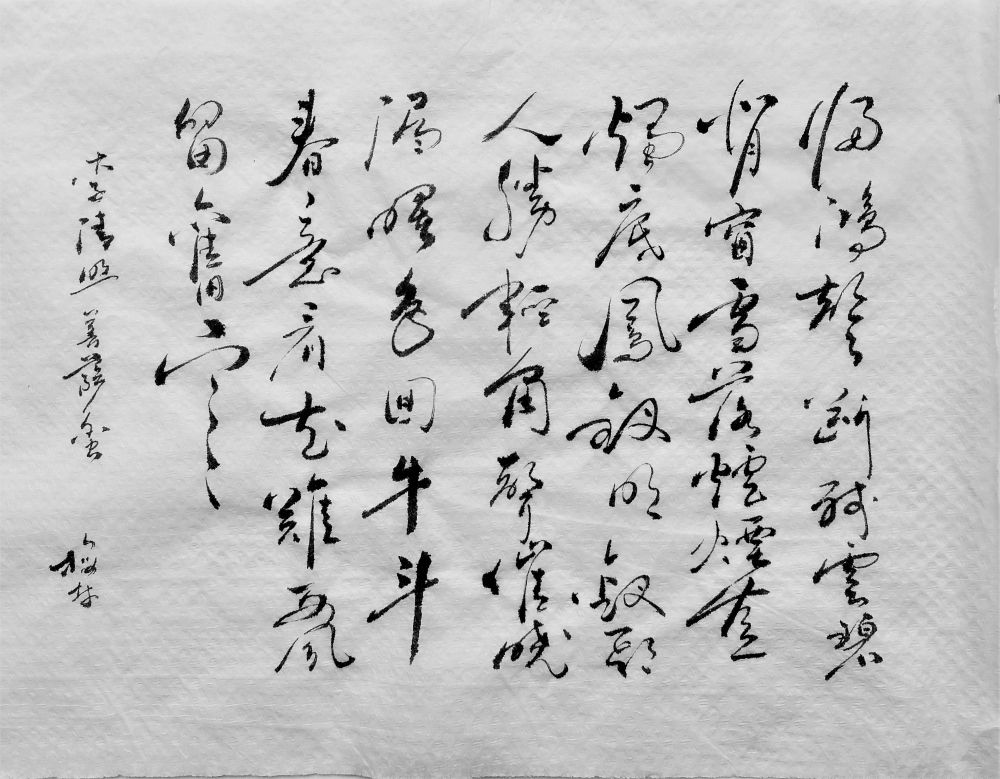 歸鴻聲斷殘雲碧
背窗雪落爐煙直
燭底鳳釵明釵頭
人勝輕角聲催曉
漏曙色回牛斗
春意看花難西風
留舊寒
李清照菩薩蠻
梅